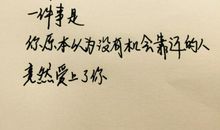 一件事是
你原本以为没有机会靠近的人
竟然爱上了你